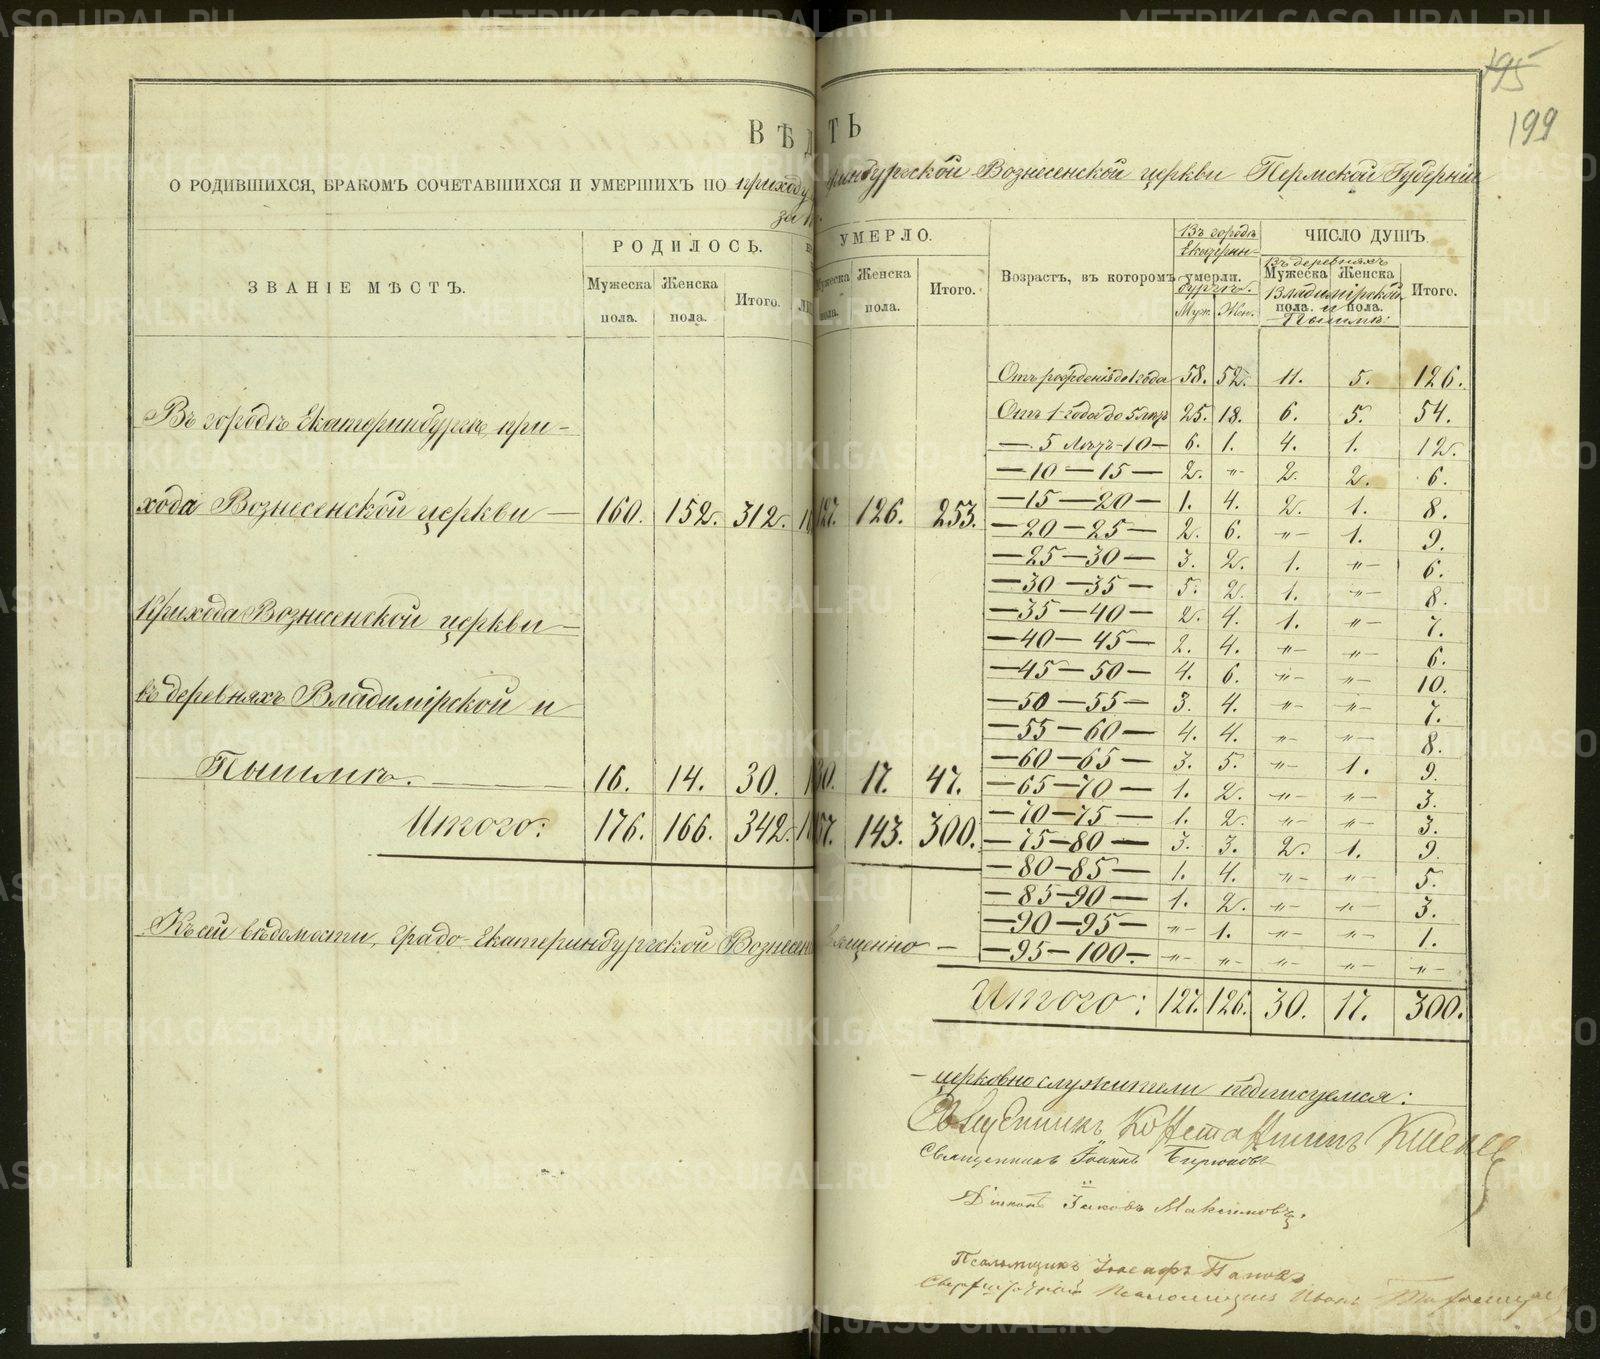 195
199
ВѢД ТЬ
О РОДИВШИХСЯ, БРАКОМЪ СОЧЕТАВШИХСЯ И УМЕРШИХЪ ПО приходу ринбургской Вознесенской церкви Пермской Губерніи
за
ЗВАНІЕ МѢСТЪ.
РОДИЛОСЬ.
Мужеска пола.
Женска пола.
Итого.
УМЕРЛО.
Мужеска пола.
Женска пола.
Итого.
Возрастъ, въ которомъ умерли.
Въ городѣ Екатерин-
бургѣ.
Муж. Жен.
ЧИСЛО ДУШЪ.
Въ деревняхъ
Владимірской и
Пышмѣ:
Мужеска пола.
Женска пола.
Итого.
Въ городѣ Екатеринбургѣ, при-
хода Вознесенской церкви — 160. 152. 312. 127. 126. 253.
Прихода Вознесенской церкви —
въ деревняхъ Владимірской и
Пышмѣ. — 16. 14. 30. 30. 17. 47.
Итого: 176. 166. 342. 57. 143. 300.
Отъ рожденія до 1 года 58. 52. 11. 5. 126.
Отъ 1 года до 5 лѣтъ 25. 18. 6. 5. 54.
— 5 лѣтъ - 10 — 6. 1. 4. 1. 12.
— 10 — 15 — 2. -"- 2. 2. 6.
— 15 — 20 — 1. 4. 2. 1. 8.
— 20 — 25 — 2. 6. -"- 1. 9.
— 25 — 30 — 3. 2. 1. -"- 6.
— 30 — 35 — 5. 2. 1. -"- 8.
— 35 — 40 — 2. 4. 1. -"- 7.
— 40 — 45 — 2. 4. -"- -"- 6.
— 45 — 50 — 4. 6. -"- -"- 10.
— 50 — 55 — 3. 4. -"- -"- 7.
— 55 — 60 — 4. 4. -"- -"- 8.
— 60 — 65 — 3. 5. -"- 1. 9.
— 65 — 70 — 1. 2. -"- -"- 3.
— 70 — 75 — 1. 2. -"- -"- 3.
— 75 — 80 — 3. 3. 2. 1. 9.
— 80 — 85 — 1. 4. -"- -"- 5.
— 85 — 90 — 1. 2. -"- -"- 3.
— 90 — 95 — -"- 1. -"- -"- 1.
— 95 — 100. — -"- -"- -"- -"- -"-
Итого: 127. 126. 30. 17. 300.
Къ сей вѣдомости, Градо-Екатеринбургской Вознесен священно —
— церковнослужители подписуемся:
Священникъ Константинъ
Священникъ Іоаннъ Бирюковъ
Діаконъ Іаковъ Максимовъ.
Псаломщикъ Іосифъ Поповъ
Сверхштатный Псаломщикъ Иванъ
METRIKI.GASO-URAL.RU